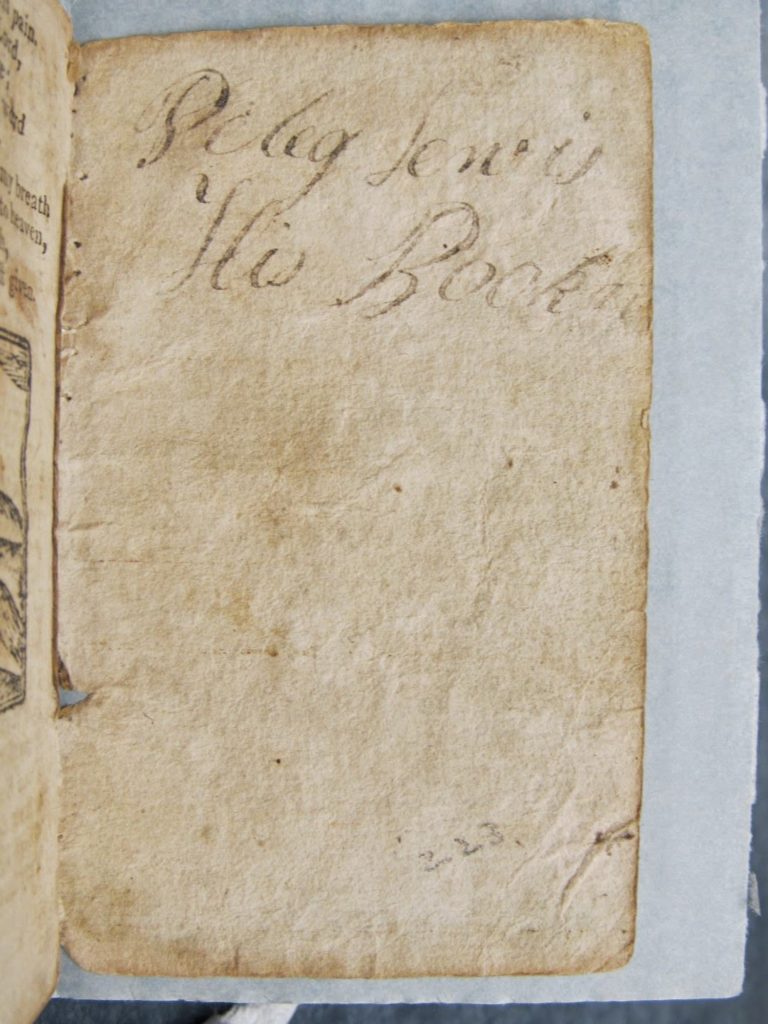 pain.
Lord,
my breath
to heaven,
given.
Peleg Lewis
His Book
223